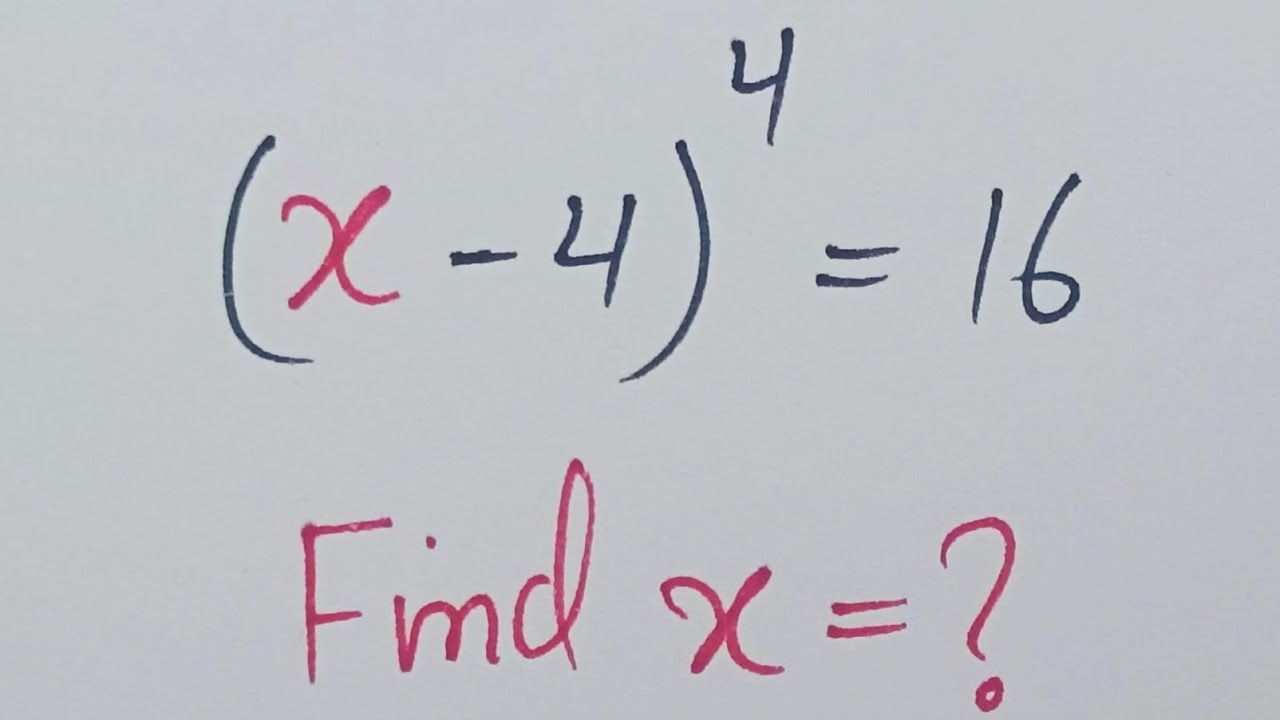 (x - 4)⁴ = 16
Find x = ?